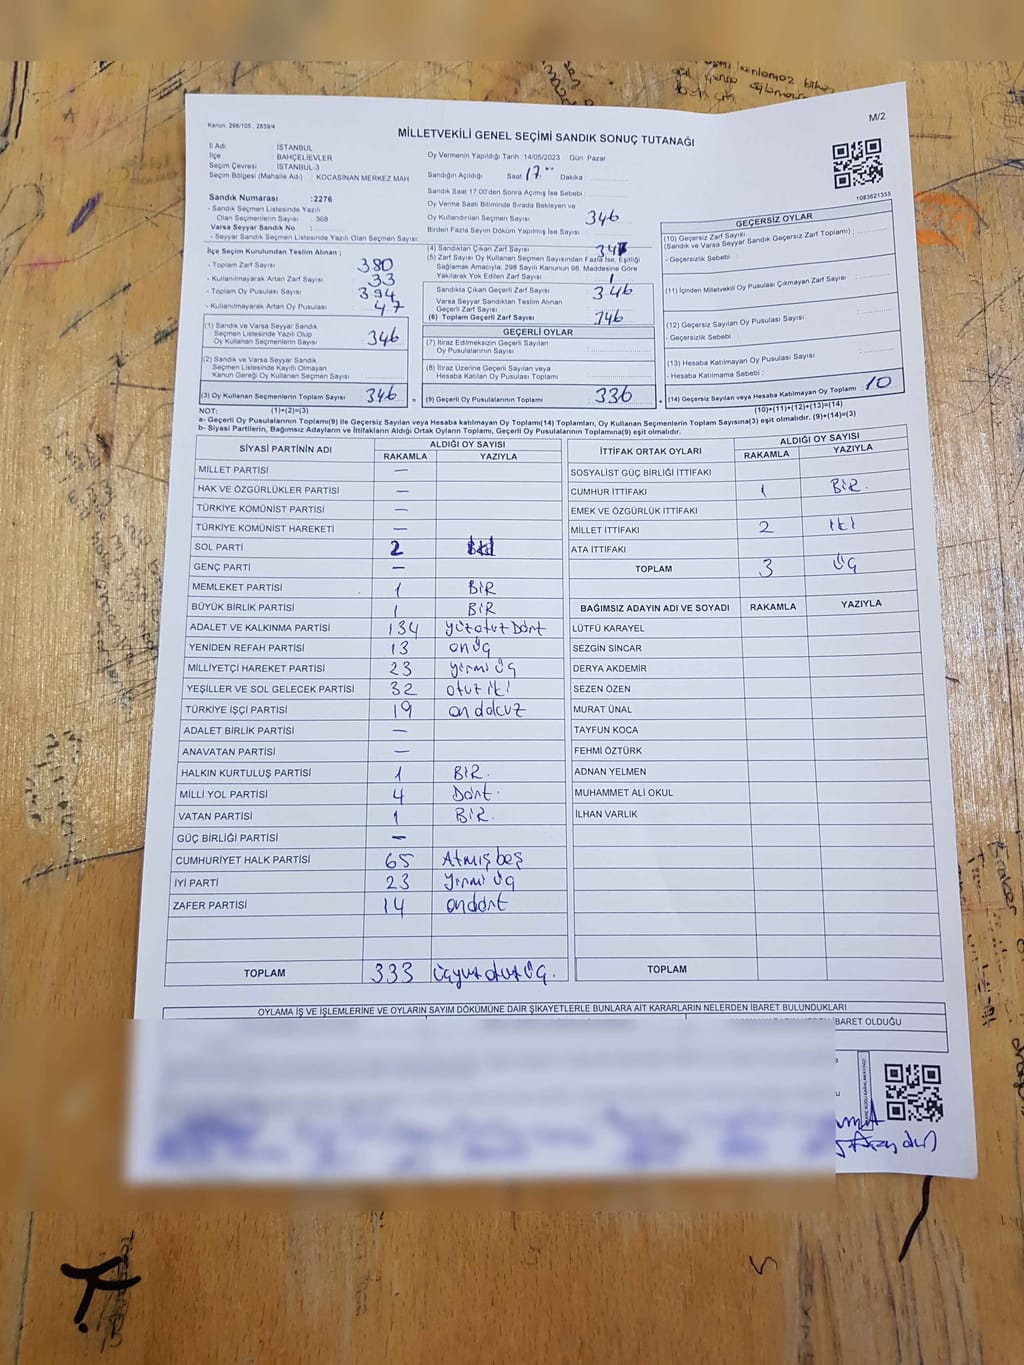 Kanun; 298/105 ; 2839/4
M/2
MİLLETVEKİLİ GENEL SEÇİMİ SANDIK SONUÇ TUTANAĞI
İl Adı İSTANBUL
İlçe BAHÇELİEVLER
Seçim Çevresi : İSTANBUL-3
Seçim Bölgesi (Mahalle Adı) : KOCASİNAN MERKEZ MAH
Sandık Numarası :2276
- Sandık Seçmen Listesinde Yazılı
Olan Seçmenlerin Sayısı : 368
Varsa Seyyar Sandık No :
- Seyyar Seçmen Listesinde Yazılı Olan Seçmen Sayısı:
Oy Vermenin Yapıldığı Tarih :14/05/2023 Gün: Pazar
Sandığın Açıldığı Saat 17.00 Dakika :
Sandık Saat 17:00'den Sonra Açımış İse Sebebi :
Oy Verme Saati Bitiminde Sırada Bekleyen ve
Oy Kullandırılan Seçmen Sayısı 346
Birden Fazla Sayım Döküm Yapılmış İse Sayısı :
1083621355
İlçe Seçim Kurulundan Teslim Alınan ;
- Toplam Zarf Sayısı 380
- Kullanılmayarak Artan Zarf Sayısı 33
- Toplam Oy Pusulası Sayısı 394
- Kullanılmayarak Artan Oy Pusulası 47
(1) Sandık ve Varsa Seyyar Sandık
Seçmen Listesinde Yazılı Olup
Oy Kullanan Seçmenlerin Sayısı 346
(2) Sandık ve Varsa Seyyar Sandık
Seçmen Listesinde Kayıtlı Olmayan
Kanun Gereği Oy Kullanan Seçmen Sayısı :
(3) Oy Kullanan Seçmenlerin Toplam Sayısı 346 =
(4) Sandıktan Çıkan Zarf Sayısı 347
(5) Zarf Sayısı Oy Kullanan Seçmen Sayısından Fazla İse, Eşitliği
Sağlamak Amacıyla; 298 Sayılı Kanunun 98. Maddesine Göre
Yakılarak Yok Edilen Zarf Sayısı 1
Sandıkta Çıkan Geçerli Zarf Sayısı 346
Varsa Seyyar Sandıktan Teslim Alınan
Geçerli Zarf Sayısı :
(6) Toplam Geçerli Zarf Sayısı 346
GEÇERLİ OYLAR
(7) İtiraz Edilmeksizin Geçerli Sayılan
Oy Pusulalarının Sayısı :
(8) İtiraz Üzerine Geçerli Sayılan veya
Hesaba Katılan Oy Pusulası Toplamı :
(9) Geçerli Oy Pusulalarının Toplamı 336 +
GEÇERSİZ OYLAR
(10) Geçersiz Zarf Sayısı
(Sandık ve Varsa Seyyar Sandık Geçersiz Zarf Toplamı) :
- Geçersizlik Sebebi :
(11) İçinden Milletvekili Oy Pusulası Çıkmayan Zarf Sayısı :
(12) Geçersiz Sayılan Oy Pusulası Sayısı :
- Geçersizlik Sebebi :
(13) Hesaba Katılmayan Oy Pusulası Sayısı :
- Hesaba Katılmama Sebebi :
(14) Geçersiz Sayılan veya Hesaba Katılmayan Oy Toplamı : 10
NOT: (1)+(2)=(3) (10)+(11)+(12)+(13)=(14)
a- Geçerli Oy Pusulalarının Toplamı(9) ile Geçersiz Sayılan veya Hesaba katılmayan Oy Toplamı(14) Toplamları, Oy Kullanan Seçmenlerin Toplam Sayısına(3) eşit olmalıdır. (9)+(14)=(3)
b- Siyasi Partilerin, Bağımsız Adayların ve İttifakların Aldığı Ortak Oyların Toplamı, Geçerli Oy Pusulalarının Toplamına(9) eşit olmalıdır.
SİYASİ PARTİNİN ADI ALDIĞI OY SAYISI
RAKAMLA YAZIYLA
MİLLET PARTİSİ —
HAK VE ÖZGÜRLÜKLER PARTİSİ —
TÜRKİYE KOMÜNİST PARTİSİ —
TÜRKİYE KOMÜNİST HAREKETİ —
SOL PARTİ 2
GENÇ PARTİ —
MEMLEKET PARTİSİ 1 BİR
BÜYÜK BİRLİK PARTİSİ 1 BİR
ADALET VE KALKINMA PARTİSİ 134 yüzotuzDört
YENİDEN REFAH PARTİSİ 13 onüç
MİLLİYETÇİ HAREKET PARTİSİ 23 yirmi üç
YEŞİLLER VE SOL GELECEK PARTİSİ 32 otuz iki
TÜRKİYE İŞÇİ PARTİSİ 19 on dokuz
ADALET BİRLİK PARTİSİ —
ANAVATAN PARTİSİ —
HALKIN KURTULUŞ PARTİSİ 1 BİR.
MİLLİ YOL PARTİSİ 4 Dört.
VATAN PARTİSİ 1 BİR.
GÜÇ BİRLİĞİ PARTİSİ —
CUMHURİYET HALK PARTİSİ 65 Atmış beş
İYİ PARTİ 23 Yirmi üç
ZAFER PARTİSİ 14 ondört
TOPLAM 333 üçyüz otuz üç.
İTTİFAK ORTAK OYLARI ALDIĞI OY SAYISI
RAKAMLA YAZIYLA
SOSYALİST GÜÇ BİRLİĞİ İTTİFAKI
CUMHUR İTTİFAKI 1 BİR.
EMEK VE ÖZGÜRLÜK İTTİFAKI
MİLLET İTTİFAKI 2 İki
ATA İTTİFAKI
TOPLAM 3 üç
BAĞIMSIZ ADAYIN ADI VE SOYADI RAKAMLA YAZIYLA
LÜTFÜ KARAYEL
SEZGİN SİNCAR
DERYA AKDEMİR
SEZEN ÖZEN
MURAT ÜNAL
TAYFUN KOCA
FEHMİ ÖZTÜRK
ADNAN YELMEN
MUHAMMET ALİ OKUL
İLHAN VARLIK
TOPLAM
OYLAMA İŞ VE İŞLEMLERİNE VE OYLARIN SAYIM DÖKÜMÜNE DAİR ŞİKAYETLERLE BUNLARA AİT KARARLARIN NELERDEN İBARET BULUNDUKLARI
İBARET OLDUĞU